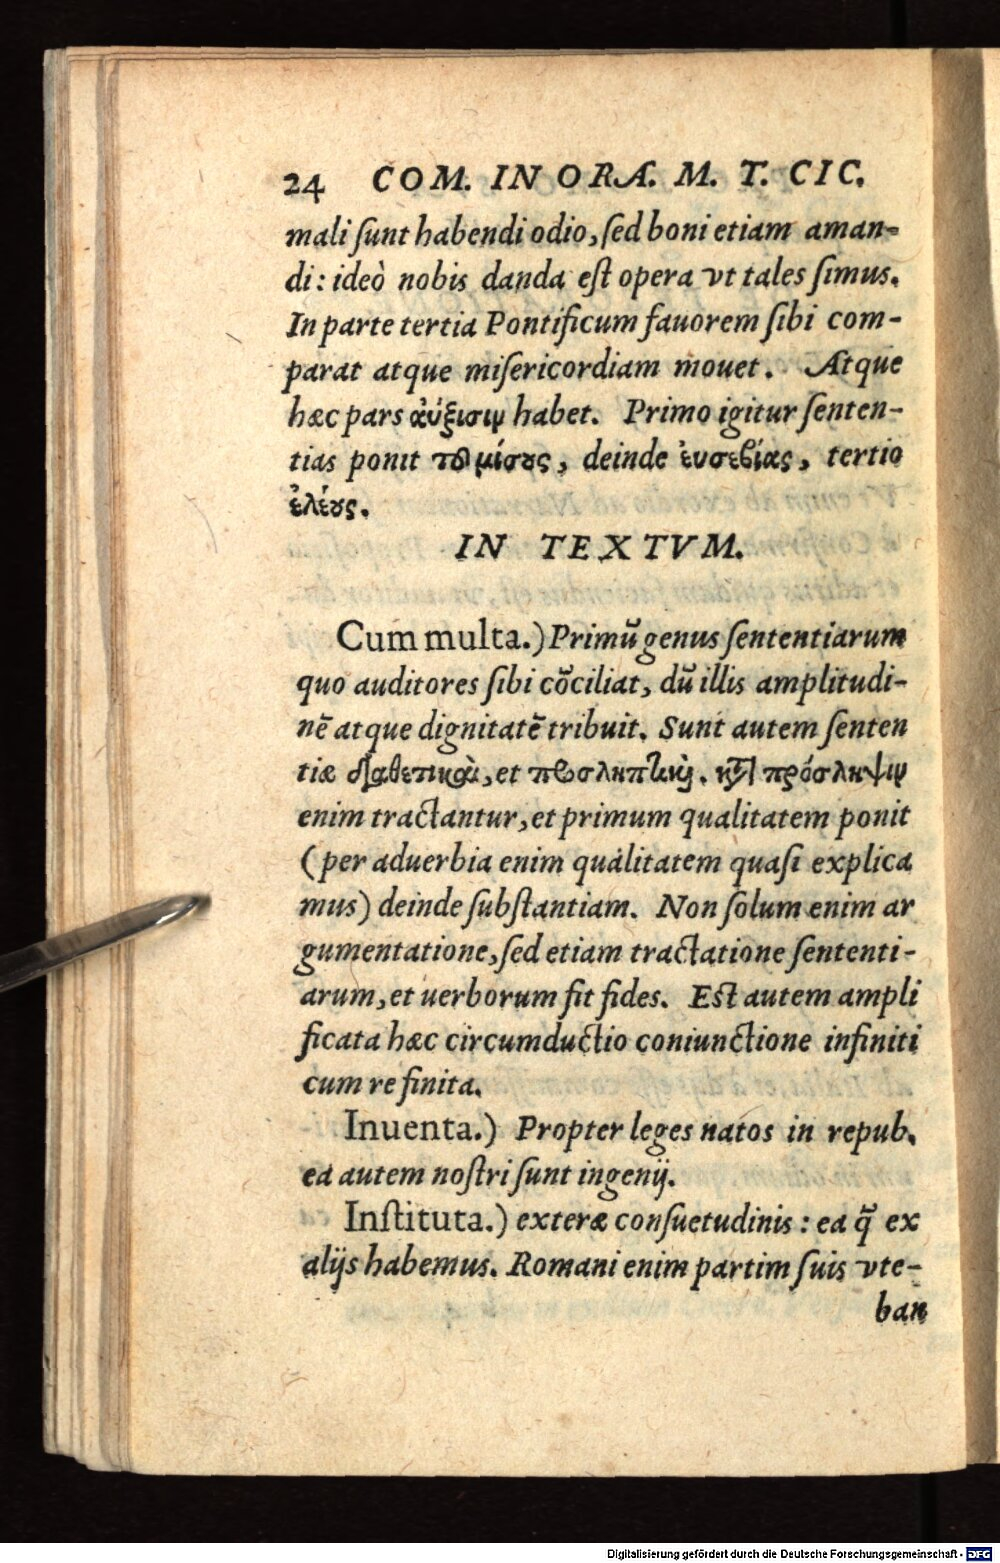 24 COM. IN ORA. M. T. CIC.
mali sunt habendi odio, sed boni etiam aman-
di: ideò nobis danda est opera vt tales simus.
In parte tertia Pontificum fauorem sibi com-
parat atque misericordiam mouet. Atque
hæc pars ἀύξισιμ habet. Primo igitur senten-
tias ponit τοῦ μίσους, deinde ἐυσεβίας, tertio
ἐλέους.
IN TEXTVM.
Cum multa.) Primũ genus sententiarum
quo auditores sibi cõciliat, dũ illis amplitudi-
nẽ atque dignitatẽ tribuit. Sunt autem senten
tiæ διαθετικαὶ, et προσληπτικὴ. κατὰ πρόσληψιμ
enim tractantur, et primum qualitatem ponit
(per aduerbia enim qualitatem quasi explica
mus) deinde substantiam. Non solum enim ar
gumentatione, sed etiam tractatione sententi-
arum, et uerborum fit fides. Est autem ampli
ficata hæc circumductio coniunctione infiniti
cum re finita.
Inuenta.) Propter leges natos in repub.
ea autem nostri sunt ingenij.
Instituta.) exteræ consuetudinis: ea q̃ ex
alijs habemus. Romani enim partim suis vte-
ban
Digitalisierung gefördert durch die Deutsche Forschungsgemeinschaft - DFG